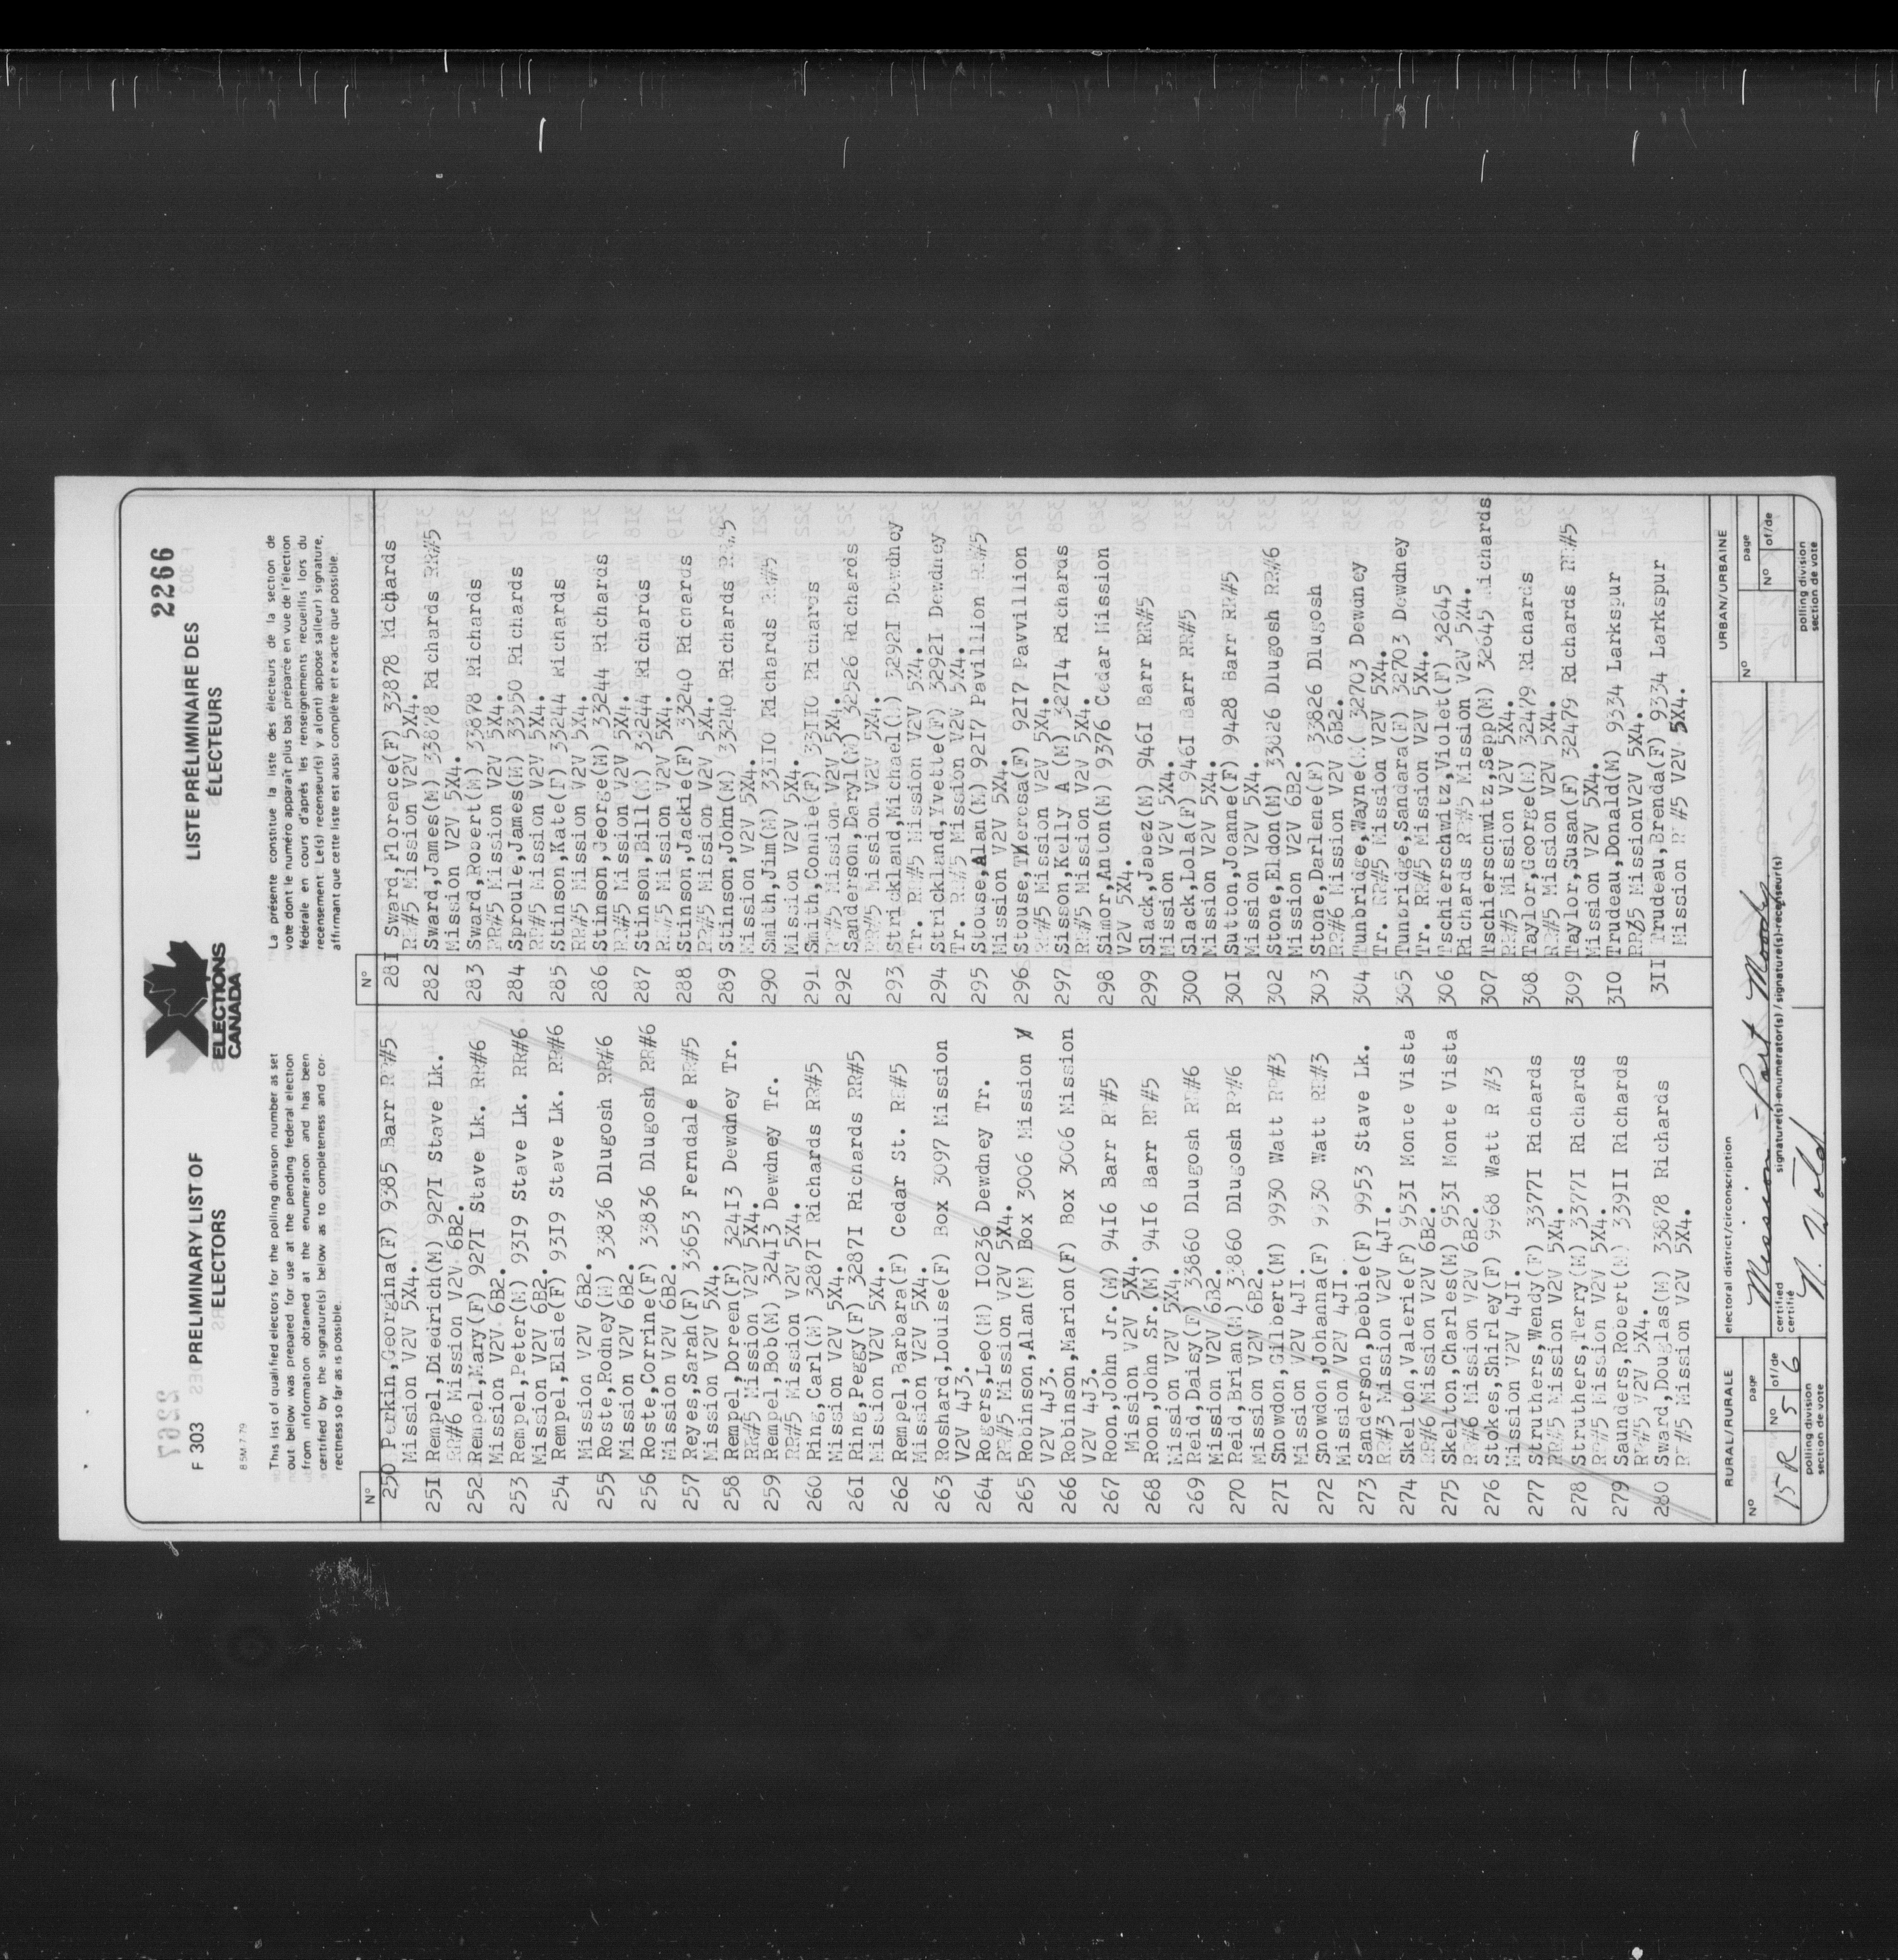 2266
F 303
PRELIMINARY LIST OF
ELECTORS
ELECTIONS
CANADA
LISTE PRÉLIMINAIRE DES
ÉLECTEURS
85M-7-79
This list of qualified electors for the polling division number as set
out below was prepared for use at the pending federal election
from information obtained at the enumeration and has been
certified by the signature(s) below as to completeness and cor-
rectness so far as is possible.
La présente constitue la liste des électeurs de la section de
vote dont le numéro apparaît plus bas préparée en vue de l'élection
fédérale en cours d'après les renseignements recueillis lors du
recensement. Le(s) recenseur(s) y a(ont) apposé sa(leur) signature,
affirmant que cette liste est aussi complète et exacte que possible.
Nº
250 Perkin,Georgina(F) 9385 Barr RR#5
Mission V2V 5X4.
25I Rempel,Diedrich(M) 927I Stave Lk.
RR#6 Mission V2V 6B2.
252 Rempel,Mary(F) 927I Stave Lk. RR#6
Mission V2V 6B2.
253 Rempel,Peter(M) 93I9 Stave Lk. RR#6
Mission V2V 6B2.
254 Rempel,Elsie(F) 93I9 Stave Lk. RR#6
Mission V2V 6B2.
255 Roste,Rodney(M) 33836 Dlugosh RR#6
Mission V2V 6B2.
256 Roste,Corrine(F) 33836 Dlugosh RR#6
Mission V2V 6B2.
257 Reyes,Sarah(F) 33653 Ferndale RR#5
Mission V2V 5X4.
258 Rempel,Doreen(F) 324I3 Dewdney Tr.
RR#5 Mission V2V 5X4.
259 Rempel,Bob(M) 324I3 Dewdney Tr.
RR#5 Mission V2V 5X4.
260 Ring,Carl(M) 3287I Richards RR#5
Mission V2V 5X4.
26I Ring,Peggy(F) 3287I Richards RR#5
Mission V2V 5X4.
262 Rempel,Barbara(F) Cedar St. RR#5
Mission V2V 5X4.
263 Roshard,Louise(F) Box 3097 Mission
V2V 4J3.
264 Rogers,Leo(M) I0236 Dewdney Tr.
RR#5 Mission V2V 5X4.
265 Robinson,Alan(M) Box 3006 Mission
V2V 4J3.
266 Robinson,Marion(F) Box 3006 Mission
V2V 4J3.
267 Roon,John Jr.(M) 94I6 Barr RR#5
Mission V2V 5X4.
268 Roon,John Sr.(M) 94I6 Barr RR#5
Mission V2V 5X4.
269 Reid,Daisy(F) 33860 Dlugosh RR#6
Mission V2V 6B2.
270 Reid,Brian(M) 33860 Dlugosh RR#6
Mission V2V 6B2.
27I Snowdon,Gilbert(M) 9930 Watt RR#3
Mission V2V 4JI.
272 Snowdon,Johanna(F) 9930 Watt RR#3
Mission V2V 4JI.
273 Sanderson,Debbie(F) 9953 Stave Lk.
RR#3 Mission V2V 4JI.
274 Skelton,Valerie(F) 953I Monte Vista
RR#6 Mission V2V 6B2.
275 Skelton,Charles(M) 953I Monte Vista
RR#6 Mission V2V 6B2.
276 Stokes,Shirley(F) 9968 Watt R #3
Mission V2V 4JI.
277 Struthers,Wendy(F) 3377I Richards
RR#5 Mission V2V 5X4.
278 Struthers,Terry(M) 3377I Richards
RR#5 Mission V2V 5X4.
279 Saunders,Robert(M) 339II Richards
RR#5 V2V 5X4.
280 Sward,Douglas(M) 33878 Richards
RR#5 Mission V2V 5X4.
Nº
28I Sward,Florence(F) 33878 Richards
RR#5 Mission V2V 5X4.
282 Sward,James(M) 33878 Richards RR#5
Mission V2V 5X4.
283 Sward,Robert(M) 33878 Richards
RR#5 Mission V2V 5X4.
284 Sproule,James(M) 33350 Richards
RR#5 Mission V2V 5X4.
285 Stinson,Kate(F) 33244 Richards
RR#5 Mission V2V 5X4.
286 Stinson,George(M) 33244 Richards
RR#5 Mission V2V 5X4.
287 Stinson,Bill(M) 33244 Richards
RR#5 Mission V2V 5X4.
288 Stinson,Jackie(F) 33240 Richards
RR#5 Mission V2V 5X4.
289 Stinson,John(M) 33240 Richards RR#5
Mission V2V 5X4.
290 Smith,Jim(M) 33II0 Richards RR#5
Mission V2V 5X4.
29I Smith,Connie(F) 33II0 Richards
RR#5 Mission V2V 5X4.
292 Sanderson,Daryl(M) 32526 Richards
RR#5 Mission V2V 5X4.
293 Strickland,Michael(M) 3292I Dewdney
Tr. RR#5 Mission V2V 5X4.
294 Strickland,Yvette(F) 3292I Dewdney
Tr. RR#5 Mission V2V 5X4.
295 Stouse,Allan(M) 92I7 Pavillion RR#5
Mission V2V 5X4.
296 Stouse,Theresa(F) 92I7 Pavvillion
RR#5 Mission V2V 5X4.
297 Sisson,Kelly A (M) 327I4 Richards
RR#5 Mission V2V 5X4.
298 Simor,Anton(M) 9376 Cedar Mission
V2V 5X4.
299 Slack,Jabez(M) 946I Barr RR#5
Mission V2V 5X4.
300 Slack,Lola(F) 946I Barr RR#5
Mission V2V 5X4.
30I Sutton,Joanne(F) 9428 Barr RR#5
Mission V2V 5X4.
302 Stone,Eldon(M) 33826 Dlugosh RR#6
Mission V2V 6B2.
303 Stone,Darlene(F) 33826 Dlugosh
RR#6 Mission V2V 6B2.
304 Tunbridge,Wayne(M( 32703 Dewdney
Tr. RR#5 Mission V2V 5X4.
305 Tunbridge,Sandara(F) 32703 Dewdney
Tr. RR#5 Mission V2V 5X4.
306 Tschierschwitz,Violet(F) 32645
Richards RR#5 Mission V2V 5X4.
307 Tschierschwitz,Sepp(M) 32645 Richards
RR#5 Mission V2V 5X4.
308 Taylor,George(M) 32479 Richards
RR#5 Mission V2V 5X4.
309 Taylor,Susan(F) 32479 Richards RR#5
Mission V2V 5X4.
3I0 Trudeau,Donald(M) 9334 Larkspur
RR65 MissionV2V 5X4.
3II Trudeau,Brenda(F) 9334 Larkspur
Mission RR#5 V2V 5X4.
RURAL/RURALE
Nº
15R
page
Nº 5 of/de 6
polling division
section de vote
electoral district/circonscription
Mission Port Moody
certified
certifié
signature(s)-enumerator(s) / signature(s)-recenseur(s)
URBAN/URBAINE
Nº
page
Nº of/de
polling division
section de vote